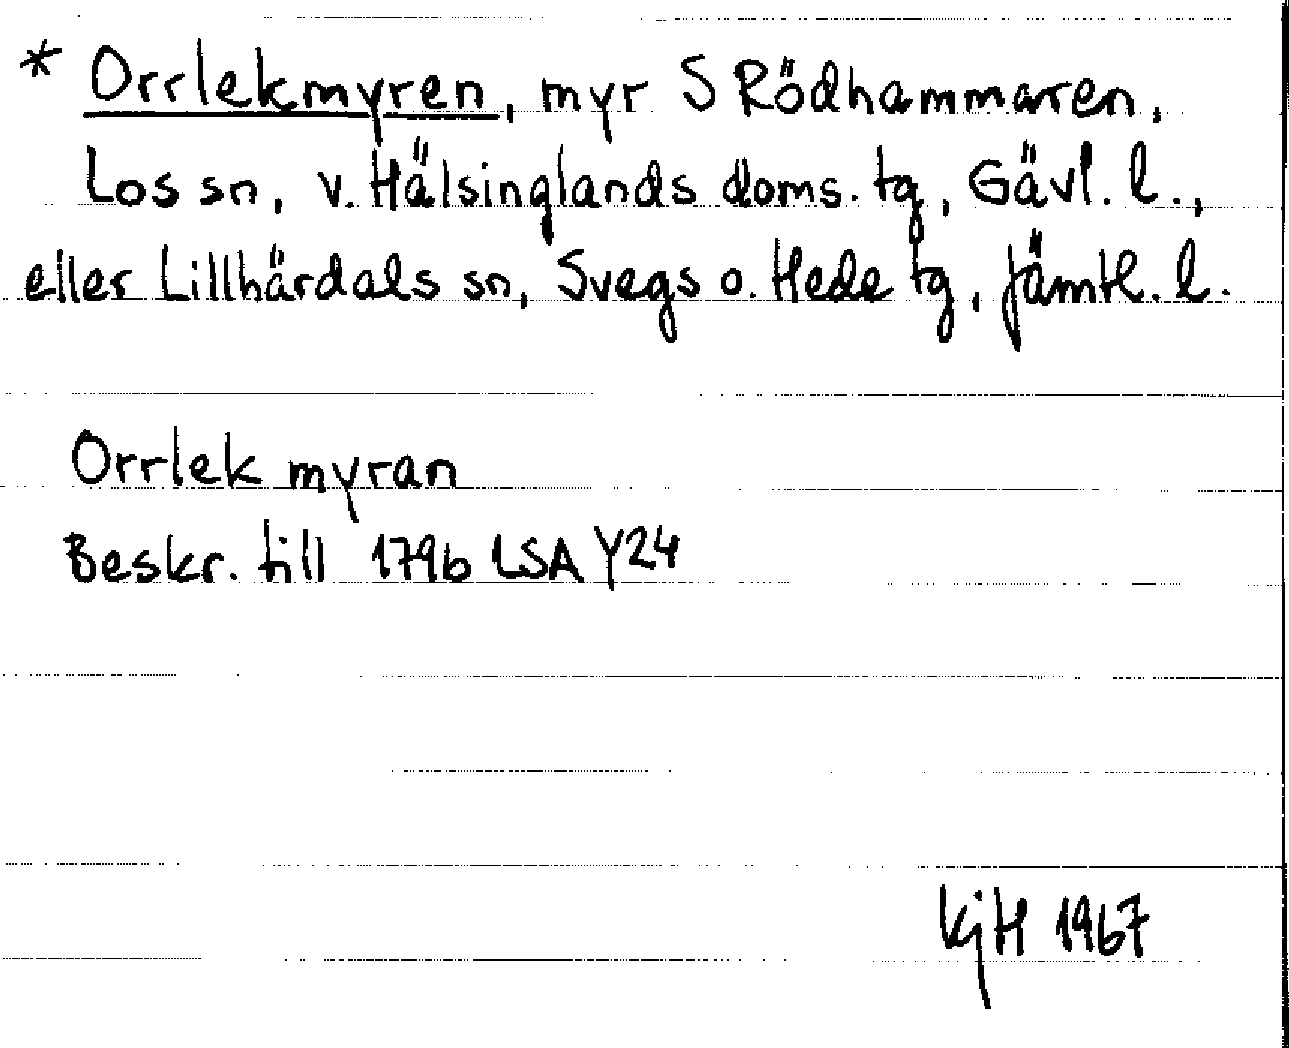 * Orrlekmyren, myr S Rödhammaren,
Los sn, v. Hälsinglands doms. tg, Gävl. l.,
eller Lillhärdals sn, Svegs o. Hede tg, Jämtl. l.
Orrlek myran
Beskr. till 1796 LSA Y24
KjH 1967